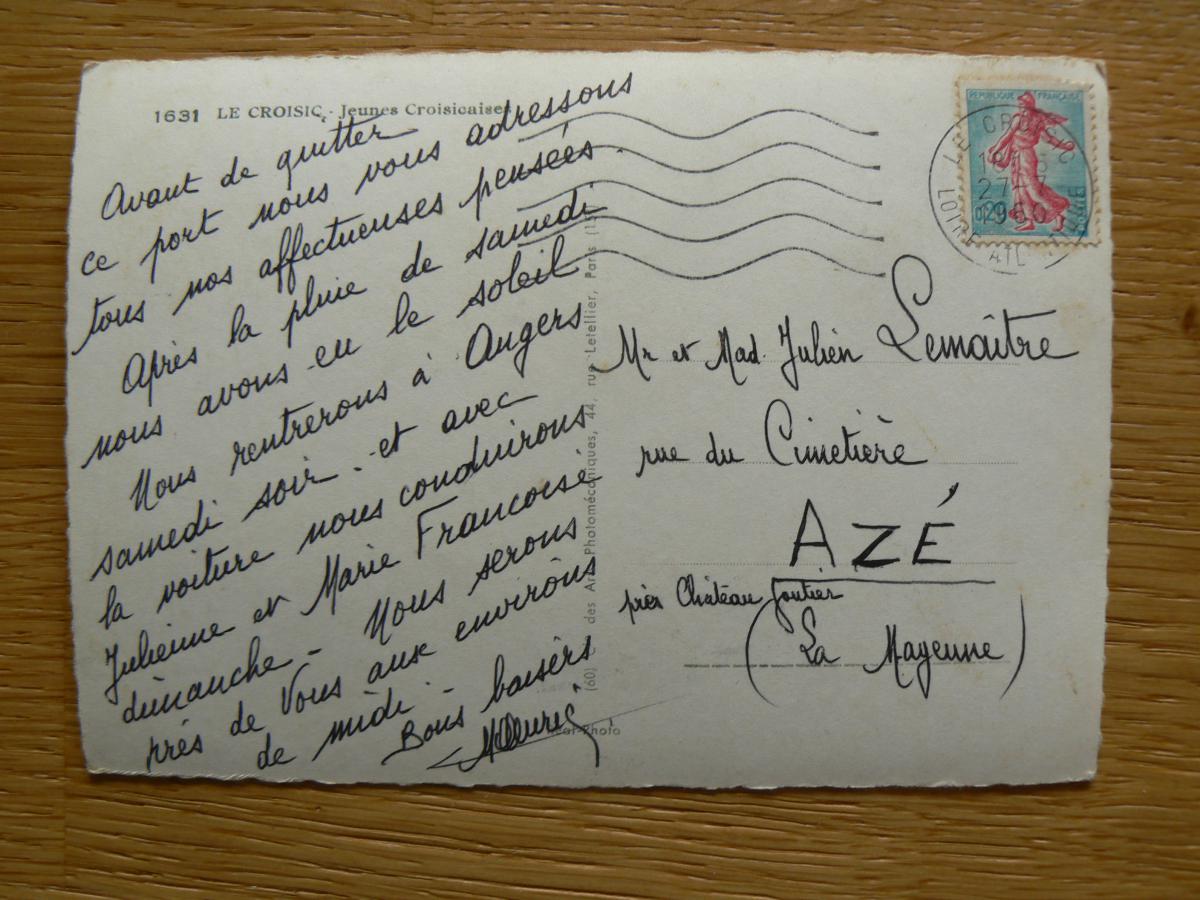 1631 LE CROISIC - Jeunes Croisicaises
Avant de quitter
ce port nous vous adressons
tous nos affectueuses pensées.
Après la pluie de samedi
nous avons eu le soleil
Nous rentrerons à Angers
samedi soir - et avec
la voiture nous conduirons
Julienne et Marie Francoise
dimanche - Nous serons
près de Vous aux environs
de midi - Bons baisers
REPUBLIQUE FRANÇAISE
LE CROISIC
27
1960
LOIRE ATL
Mr et Mad. Julien Lemaître
rue du Cimetière
AZÉ
près Château Gontier
(La Mayenne)
des Arts Photomécaniques, 44, rue Letellier, Paris (15
(60)
Réal-Photo